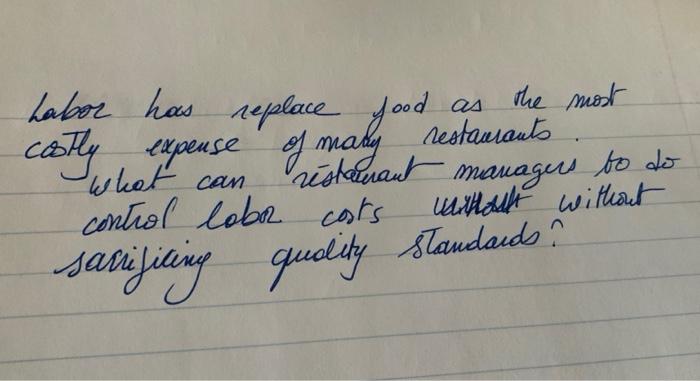 Labor has replace food as the most
costly expense of many restaurants.
What can restaurant managers to do
control labor costs without
sacrificing quality standards?